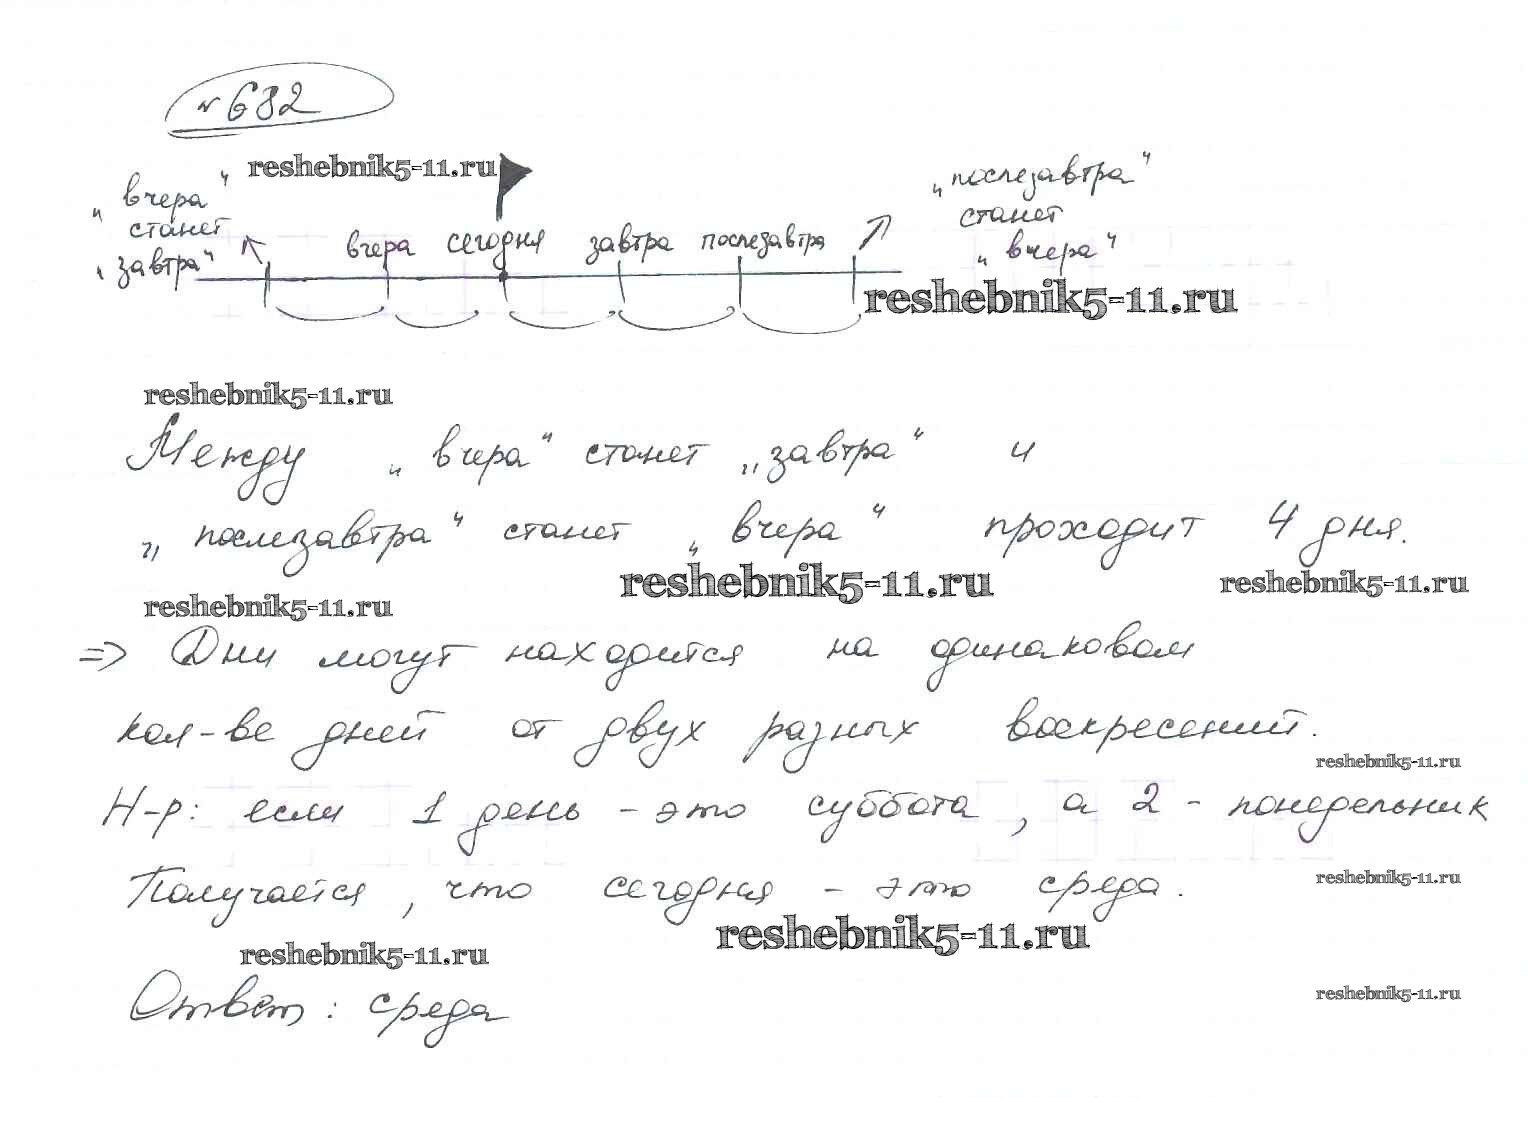 №682
reshebnik5-11.ru
„вчера“
станет
„завтра“
вчера сегодня завтра послезавтра
„послезавтра“
станет
„вчера“
reshebnik5-11.ru
reshebnik5-11.ru
Между „вчера“ станет „завтра“ и
„послезавтра“ станет „вчера“ проходит 4 дня.
reshebnik5-11.ru reshebnik5-11.ru
reshebnik5-11.ru
=> Дни могут находится на одинаковом
кол-ве дней от двух разных воскресений.
reshebnik5-11.ru
Н-р: если 1 день - это суббота, а 2 - понедельник
Получается, что сегодня - это среда.
reshebnik5-11.ru
reshebnik5-11.ru
reshebnik5-11.ru
Ответ: среда
reshebnik5-11.ru